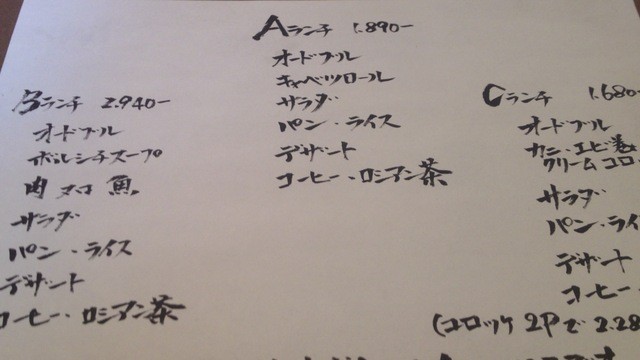 Aランチ 1.890-
オードブル
キャベツロール
サラダ
パン・ライス
デザート
コーヒー・ロシアン茶
Bランチ 2.940-
オードブル
ボルシチスープ
肉 又ハ 魚
サラダ
パン・ライス
デザート
コーヒー・ロシアン茶
Cランチ 1.680-
オードブル
カニ・エビ
クリームコロ
サラダ
パン・ライ
デザート
コーヒー・
(コロッケ 2Pで 2.28